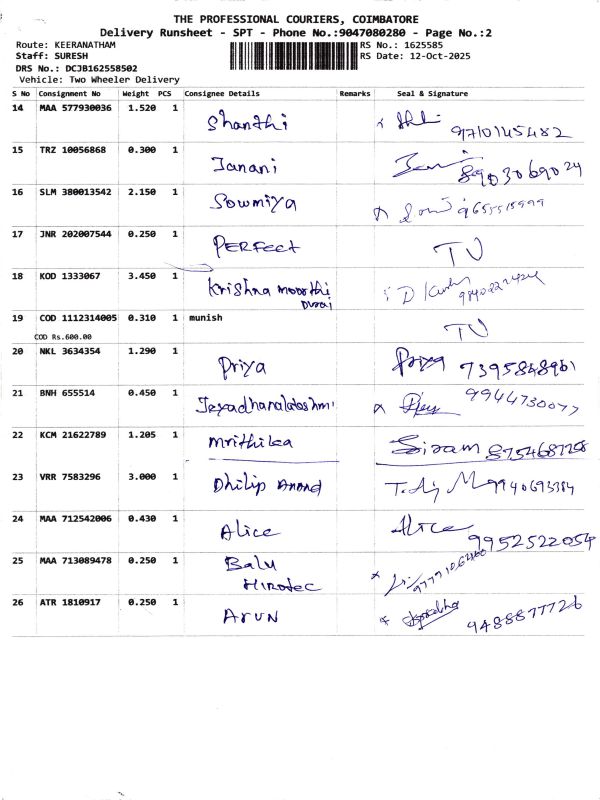 THE PROFESSIONAL COURIERS, COIMBATORE
Delivery Runsheet - SPT - Phone No.:9047080280 - Page No.:2
Route: KEERANATHAM RS No.: 1625585
Staff: SURESH RS Date: 12-Oct-2025
DRS No.: DCJB162558502
Vehicle: Two Wheeler Delivery
S No Consignment No Weight PCS Consignee Details Remarks Seal & Signature
14 MAA 577930036 1.520 1 Shanthi x 9710145482
15 TRZ 10056868 0.300 1 Janani 8903069024
16 SLM 380013542 2.150 1 Sowmiya
17 JNR 202007544 0.250 1 PERFECT TU
18 KOD 1333067 3.450 1 Krishna moorthi
Durai
19 COD 1112314005 0.310 1 munish TU
COD Rs.600.00
20 NKL 3634354 1.290 1 Priya Priya
21 BNH 655514 0.450 1 x 9944730077
22 KCM 21622789 1.205 1 Mrithika
23 VRR 7583296 3.000 1 Dhilip Anand
24 MAA 712542006 0.430 1 Alice Alice 9952522054
25 MAA 713089478 0.250 1 Balu
HIROTEC x
26 ATR 1810917 0.250 1 ARUN 9488877726